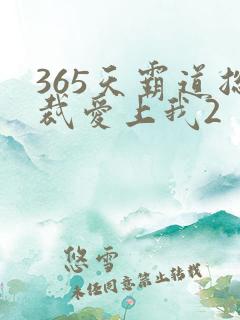 365天霸道总
裁愛上我2
悠雪
未经同意禁止转载